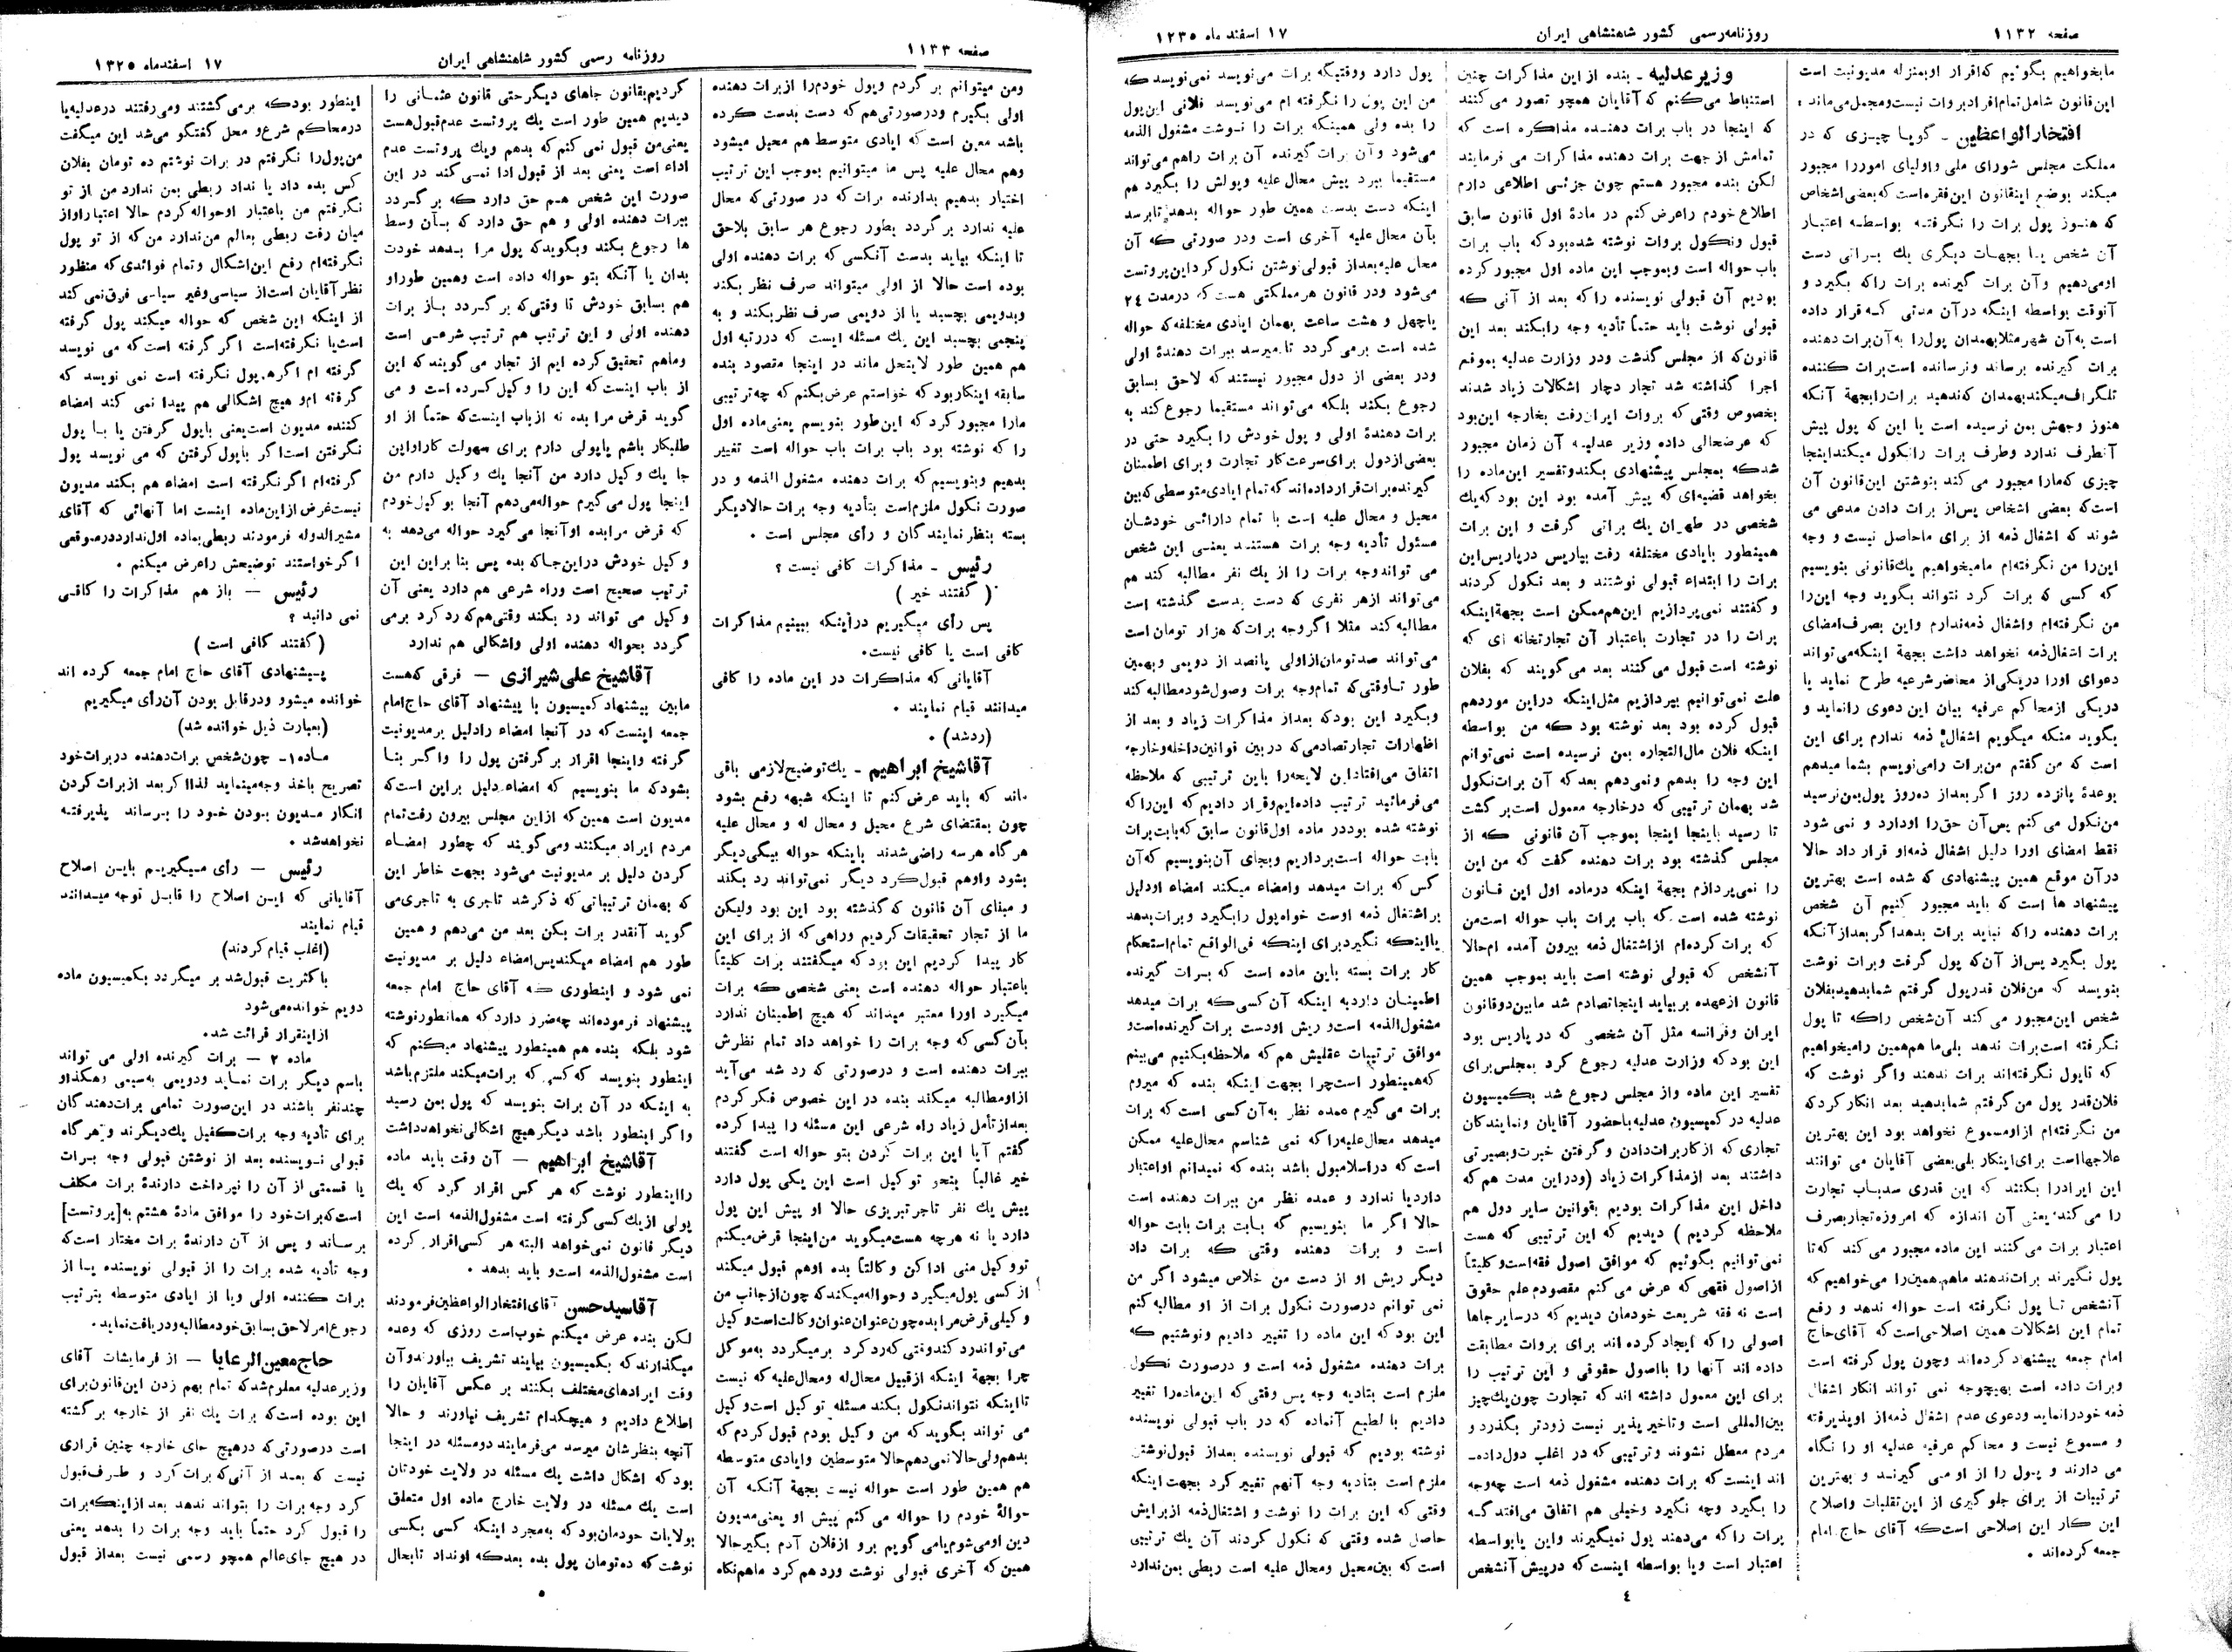 صفحه ۱۱۳۲
روزنامه رسمی کشور شاهنشاهی ایران
۱۷ اسفند ماه ۱۲۳۵
مابخواهیم بگوئیم که اقرار او بمنزله مدیونیت است
این قانون شامل تمام افراد بروات نیست و مجمل می‌ماند :
افتخار الواعظین ـ گویا چیزی که در
مملکت مجلس شورای ملی و اولیای امور را مجبور
میکند بوضع اینقانون این فقره است که بعضی اشخاص
که هنوز پول برات را نگرفته بواسطه اعتبار
آن شخص یا بجهات دیگری یك براتی دست
او می‌دهیم و آن برات گیرنده برات را که بگیرد و
آنوقت بواسطه اینکه در آن مدتی که قرار داده
است به آن شهر مثلا بهمدان پول را به آن برات دهنده
برات گیرنده برساند و نرسانده است برات کننده
تلگراف میکند بهمدان که ندهید برات را بجهة آنکه
هنوز وجهش بمن نرسیده است یا این که پول پیش
آنطرف ندارد و طرف برات را نکول میکند اینجا
چیزی که ما را مجبور می کند بنوشتن این قانون آن
است که بعضی اشخاص پس از برات دادن مدعی می
شوند که اشغال ذمه از برای ما حاصل نیست و وجه
این را من نگرفته‌ام ما میخواهیم یك قانونی بنویسیم
که کسی که برات کرد نتواند بگوید وجه این را
من نگرفته‌ام و اشغال ذمه ندارم و این بصرف امضای
برات اشغال ذمه نخواهد داشت بجهة اینکه می تواند
دعوای او را در یکی از محاضر شرعیه طرح نماید یا
در یکی از محاکم عرفیه بیان این دعوی را نماید و
بگوید منکه میگویم اشغال ذمه ندارم برای این
است که من گفتم من برات را می‌نویسم بشما میدهم
بوعدهٔ پانزده روز اگر بعد از ده روز پول بمن نرسید
من نکول می کنم پس آن حق را او دارد و نمی شود
فقط امضای او را دلیل اشغال ذمه او قرار داد حالا
در آن موقع همین پیشنهادی که شده است بهترین
پیشنهاد ها است که باید مجبور کنیم آن شخص
برات دهنده را که نباید برات بدهد اگر بعد از آنکه
پول بگیرد پس از آن که پول گرفت و برات نوشت
بنویسد که من فلان قدر پول گرفتم شما بدهید بفلان
شخص این مجبور می کند آن شخص را که تا پول
نگرفته است برات ندهد بلی ما هم همین را میخواهیم
که تا پول نگرفته‌اند برات ندهند و اگر نوشت که
فلان قدر پول من گرفتم شما بدهید بعد انکار کرد که
من نگرفته‌ام از او مسموع نخواهد بود این بهترین
علاجها است برای اینکار بلی بعضی آقایان می توانند
این ایراد را بکنند که این قدری سد باب تجارت
را می کند یعنی آن اندازه که امروزه تجار بصرف
اعتبار برات می کنند این ماده مجبور می کند که تا
پول نگیرند برات ندهند ما هم همین را می‌خواهیم که
آنشخص تا پول نگرفته است حواله ندهد و رفع
تمام این اشکالات همین اصلاحی است که آقای حاج
امام جمعه پیشنهاد کرده‌اند و چون پول گرفته است
و برات داده است بهیچوجه نمی تواند انکار اشغال
ذمه خود را نماید و دعوی عدم اشغال ذمه از او پذیرفته
و مسموع نیست و محاکم عرفیه عدلیه او را نگاه
می دارند و پول را از او می گیرند و بهترین
ترتیبات از برای جلوگیری از این تقلبات و اصلاح
این کار این اصلاحی است که آقای حاج امام
جمعه کرده‌اند .
وزیر عدلیه ـ بنده از این مذاکرات چنین
استنباط می کنم که آقایان همچو تصور می کنند
که اینجا در باب برات دهنده مذاکره است که
تمامش از جهت برات دهنده مذاکرات می فرمایند
لکن بنده مجبور هستم چون جزئی اطلاعی دارم
اطلاع خودم را عرض کنم در مادهٔ اول قانون سابق
قبول و نکول بروات نوشته شده بود که باب برات
باب حواله است و بموجب این ماده اول مجبور کرده
بودیم آن قبولی نویسنده را که بعد از آنی که
قبولی نوشت باید حتماً تأدیه وجه را بکند بعد این
قانون که از مجلس گذشت و در وزارت عدلیه بموقع
اجرا گذاشته شد تجار دچار اشکالات زیاد شدند
بخصوص وقتی که بروات ایران رفت بخارجه این بود
که عرضحالی داده وزیر عدلیه آن زمان مجبور
شد که بمجلس پیشنهادی بکند و تفسیر این ماده را
بخواهد قضیه‌ای که پیش آمده بود این بود که یك
شخصی در طهران یك براتی گرفت و این برات
همینطور بایادی مختلفه رفت بپاریس در پاریس این
برات را ابتداء قبولی نوشتند و بعد نکول کردند
و گفتند نمی پردازیم این هم ممکن است بجهة اینکه
برات را در تجارت باعتبار آن تجارتخانه ای که
نوشته است قبول می کنند بعد می گویند که بفلان
علت نمی توانیم بپردازیم مثل اینکه در این مورد هم
قبول کرده بود بعد نوشته بود که من بواسطه
اینکه فلان مال التجاره بمن نرسیده است نمی توانم
این وجه را بدهم و نمی دهم بعد که آن برات نکول
شد بهمان ترتیبی که در خارجه معمول است برگشت
تا رسید باینجا اینجا بموجب آن قانونی که از
مجلس گذشته بود برات دهنده گفت که من این
را نمی پردازم بجهة اینکه در ماده اول این قانون
نوشته شده است که باب برات باب حواله است من
که برات کرده‌ام از اشتغال ذمه بیرون آمده ام حالا
آنشخص که قبولی نوشته است باید بموجب همین
قانون از عهده بر بیاید اینجا تصادم شد ما بین دو قانون
ایران و فرانسه مثل آن شخصی که در پاریس بود
این بود که وزارت عدلیه رجوع کرد بمجلس برای
تفسیر این ماده و از مجلس رجوع شد بکمیسیون
عدلیه در کمیسیون عدلیه با حضور آقایان و نمایندگان
تجاری که از کار برات دادن و گرفتن خبرت و بصیرتی
داشتند بعد از مذاکرات زیاد (و در این مدت هم که
داخل این مذاکرات بودیم بقوانین سایر دول هم
ملاحظه کردیم ) دیدیم که این ترتیبی که هست
نمی توانیم بگوئیم که موافق اصول فقه است و کلیتاً
از اصول فقهی که عرض می کنم مقصودم علم حقوق
است نه فقه شریعت خودمان دیدیم که در سایر جاها
اصولی را که ایجاد کرده اند برای بروات مطابقت
داده اند آنها را با اصول حقوقی و این ترتیب را
برای این معمول داشته اند که تجارت چون یك چیز
بین المللی است و تاخیر پذیر نیست زودتر بگذرد و
مردم معطل نشوند و ترتیبی که در اغلب دول داده‌ـ
اند اینست که برات دهنده مشغول ذمه است چه وجه
را بگیرد وچه نگیرد و خیلی هم اتفاق می افتد که
برات را که می دهند پول نمیگیرند و این یا بواسطه
اعتبار است و یا بواسطه اینست که در پیش آنشخص
پول دارد و وقتیکه برات می نویسد نمی نویسد که
من این پول را نگرفته ام می نویسد فلانی این پول
را بده ولی همینکه برات را نوشت مشغول الذمه
می شود و آن برات گیرنده آن برات را هم می تواند
مستقیما ببرد پیش محال علیه و پولش را بگیرد هم
اینکه دست بدست همین طور حواله بدهد تا برسد
بآن محال علیه آخری است و در صورتی که آن
محال علیه بعد از قبولی نوشتن نکول کرد این پروتست
می شود و در قانون هر مملکتی هست که در مدت ۲۴
یا چهل و هشت ساعت بهمان ایادی مختلفه که حواله
شده است برمی گردد تا میرسد ببرات دهندهٔ اولی
و در بعضی از دول مجبور نیستند که لاحق بسابق
رجوع بکند بلکه می تواند مستقیما رجوع کند به
برات دهندهٔ اولی و پول خودش را بگیرد حتی در
بعضی از دول برای سرعت کار تجارت و برای اطمینان
گیرنده برات قرار داده‌اند که تمام ایادی متوسطی که بین
محیل و محال علیه است با تمام دارائی خودشان
مسئول تأدیه وجه برات هستند یعنی این شخص
می تواند وجه برات را از یك نفر مطالبه کند هم
می تواند از هر نفری که دست بدست گذشته است
مطالبه کند مثلا اگر وجه برات که هزار تومان است
می تواند صد تومان از اولی پانصد از دویمی و بهمین
طور تا وقتی که تمام وجه برات وصول شود مطالبه کند
و بگیرد این بود که بعد از مذاکرات زیاد و بعد از
اظهارات تجار تصادمی که در بین قوانین داخله و خارجه
اتفاق می افتاد این لایحه را باین ترتیبی که ملاحظه
می فرمائید ترتیب داده‌ایم و قرار دادیم که این را که
نوشته شده بود در ماده اول قانون سابق که بابت برات
بابت حواله است برداریم و بجای آن بنویسیم که آن
کس که برات میدهد و امضاء میکند امضاء او دلیل
بر اشتغال ذمه اوست خواه پول را بگیرد و برات بدهد
یا اینکه نگیرد برای اینکه فی الواقع تمام استحکام
کار برات بسته باین ماده است که برات گیرنده
اطمینان دارد به اینکه آن کسی که برات میدهد
مشغول الذمه است و ریش او دست برات گیرنده است و
موافق ترتیبات عقلیش هم که ملاحظه بکنیم می بینیم
که همینطور است چرا بجهت اینکه بنده که میروم
برات می گیرم عمده نظر به آن کسی است که برات
میدهد محال علیه را که نمی شناسم محال علیه ممکن
است که در اسلامبول باشد بنده که نمیدانم او اعتبار
دارد یا ندارد و عمده نظر من ببرات دهنده است
حالا اگر ما بنویسیم که بابت برات بابت حواله
است و برات دهنده وقتی که برات داد
دیگر ریش او از دست من خلاص میشود اگر من
نمی توانم در صورت نکول برات از او مطالبه کنم
این بود که این ماده را تغییر دادیم و نوشتیم که
برات دهنده مشغول ذمه است و در صورت نکول
ملزم است بتادیه وجه پس وقتی که این ماده را تغییر
دادیم بالطبع آنماده که در باب قبولی نویسنده
نوشته بودیم که قبولی نویسنده بعد از قبول نوشتن
ملزم است بتأدیه وجه آنهم تغییر کرد بجهت اینکه
وقتی که این برات را نوشت و اشتغال ذمه از برایش
حاصل شده وقتی که نکول کردند آن یك ترتیبی
است که بین محیل و محال علیه است ربطی بمن ندارد
٤
صفحه ۱۱۳۳
روزنامه رسمی کشور شاهنشاهی ایران
۱۷ اسفندماه ۱۳۲۵
و من میتوانم برگردم و پول خودم را از برات دهنده
اولی بگیرم و در صورتی هم که دست بدست کرده
باشد معین است که ایادی متوسط هم محیل میشود
و هم محال علیه پس ما میتوانیم بموجب این ترتیب
اختیار بدهیم بدارنده برات که در صورتی که محال
علیه ندارد برگردد بطور رجوع هر سابق بلاحق
تا اینکه بیاید بدست آنکسی که برات دهنده اولی
بوده است حالا از اولی میتواند صرف نظر بکند
و بدویمی بچسبد یا از دویمی صرف نظر بکند و به
پنجمی بچسبد این یك مسئله ایست که در رتبه اول
هم همین طور لاینحل ماند در اینجا مقصود بنده
سابقه اینکار بود که خواستم عرض بکنم که چه ترتیبی
ما را مجبور کرد که این طور بنویسم یعنی ماده اول
را که نوشته بود باب برات باب حواله است تغییر
بدهیم و بنویسیم که برات دهنده مشغول الذمه و در
صورت نکول ملزم است بتأدیه وجه برات حالا دیگر
بسته بنظر نمایندگان و رأی مجلس است .
رئیس ـ مذاکرات کافی نیست ؟
( گفتند خیر )
پس رأی میگیریم در اینکه ببینیم مذاکرات
کافی است یا کافی نیست.
آقایانی که مذاکرات در این ماده را کافی
میدانند قیام نمایند .
(رد شد) .
آقا شیخ ابراهیم ـ یك توضیح لازمی باقی
ماند که باید عرض کنم تا اینکه شبهه رفع بشود
چون بمقتضای شرع محیل و محال له و محال علیه
هر گاه هر سه راضی شدند باینکه حواله بیگی دیگر
بشود و او هم قبول کرد دیگر نمی تواند رد بکند
و مبنای آن قانون که گذشته بود این بود ولیکن
ما از تجار تحقیقات کردیم و راهی که از برای این
کار پیدا کردیم این بود که میگفتند برات کلیتاً
باعتبار حواله دهنده است یعنی شخصی که برات
میگیرد او را معتبر میداند که هیچ اطمینان ندارد
بآن کسی که وجه برات را خواهد داد تمام نظرش
ببرات دهنده است و در صورتی که رد شد می آید
از او مطالبه میکند بنده در این خصوص فکر کردم
بعد از تأمل زیاد راه شرعی این مسئله را پیدا کرده
گفتم آیا این برات کردن بتو حواله است گفتند
خیر غالباً بنحو توکیل است این یکی پول دارد
پیش یك نفر تاجر تبریزی حالا او پیش این پول
دارد یا نه هرچه هست میگوید من اینجا قرض میکنم
تو وکیل منی ادا کن و کالتاً بده او هم قبول میکند
از کسی پول میگیرد و حواله میکند که چون از جانب من
وکیلی قرض مرا بده چون عنوان عنوان وکالت است وکیل
می تواند رد کند وقتی که رد کرد برمیگردد به موکل
چرا بجهة اینکه از قبیل محال له و محال علیه که نیست
تا اینکه نتواند نکول بکند مسئله توکیل است وکیل
می تواند بگوید که من وکیل بودم قبول کردم که
بدهم ولی حالا نمی دهم حالا متوسطین و ایادی متوسطه
هم همین طور است حواله نیست بجهة آنکه آن
حوالهٔ خودم را حواله می کنم پیش او یعنی مدیون
دین او می شوم یا می گویم برو از فلان آدم بگیر حالا
همین که آخری قبولی نوشت و رد هم کرد ما هم نگاه
کردیم بقانون جاهای دیگر حتی قانون عثمانی را
دیدیم همین طور است یك پروتست عدم قبول هست
یعنی من قبول نمی کنم که بدهم و یك پروتست عدم
اداء است یعنی بعد از قبول ادا نمی کند در این
صورت این شخص هم حق دارد که برگردد
ببرات دهنده اولی و هم حق دارد که بآن وسط
ها رجوع بکند و بگوید که پول مرا بدهد خودت
بدان یا آنکه بتو حواله داده است و همین طور او
هم بسابق خودش تا وقتی که برگردد باز برات
دهنده اولی و این ترتیب هم ترتیب شرعی است
و ما هم تحقیق کرده ایم از تجار می گویند که این
از باب اینست که این را وکیل کرده است و می
گوید قرض مرا بده نه از باب اینست که حتماً از او
طلبکار باشم یا پولی دارم برای سهولت کار او این
جا یك وکیل دارد من آنجا یك وکیل دارم من
اینجا پول می گیرم حواله می دهم آنجا بوکیل خودم
که قرض مرا بده او آنجا می گیرد حواله می دهد به
وکیل خودش در این جا که بده پس بنا بر این این
ترتیب صحیح است و راه شرعی هم دارد یعنی آن
وکیل می تواند رد بکند وقتی هم که رد کرد برمی
گردد بحواله دهنده اولی و اشکالی هم ندارد
آقا شیخ علی شیرازی — فرقی که هست
ما بین پیشنهاد کمیسیون با پیشنهاد آقای حاج امام
جمعه اینست که در آنجا امضاء را دلیل بر مدیونیت
گرفته و اینجا اقرار بر گرفتن پول را و اگر بنا
بشود که ما بنویسیم که امضاء دلیل بر این است که
مدیون است همین که از این مجلس بیرون رفت تمام
مردم ایراد میکنند و می گویند که چطور امضاء
کردن دلیل بر مدیونیت می شود بجهت خاطر این
که بهمان ترتیباتی که ذکر شد تاجری به تاجری می
گوید آنقدر برات بکن بعد من می دهم و همین
طور هم امضاء میکند پس امضاء دلیل بر مدیونیت
نمی شود و اینطوری که آقای حاج امام جمعه
پیشنهاد فرموده‌اند چه ضرر دارد که همانطور نوشته
شود بلکه بنده هم همینطور پیشنهاد میکنم که
اینطور بنویسد که کسی که برات میکند ملتزم باشد
به اینکه در آن برات بنویسد که پول بمن رسید
و اگر اینطور باشد دیگر هیچ اشکالی نخواهد داشت
آقا شیخ ابراهیم — آن وقت باید ماده
را اینطور نوشت که هر کس اقرار کرد که یك
پولی از یك کسی گرفته است مشغول الذمه است این
دیگر قانون نمی خواهد البته هر کسی اقرار کرده
است مشغول الذمه است و باید بدهد .
آقا سید حسن آقای افتخار الواعظین فرمودند
لکن بنده عرض میکنم خوب است روزی که وعده
میگذارند که بکمیسیون بیایند تشریف بیاورند و آن
وقت ایرادهای مختلف بکنند بر عکس آقایان را
اطلاع دادیم و هیچکدام تشریف نیاورند و حالا
آنچه بنظرشان میرسد می فرمایند دو مسئله در اینجا
بود که اشکال داشت یك مسئله در ولایت خودتان
است یك مسئله در ولایت خارج ماده اول متعلق
بولایات خودمان بود که به مجرد اینکه کسی بکسی
نوشت که ده تومان پول بده بعد که او نداد تا بحال
اینطور بود که برمی گشتند و می رفتند در عدلیه یا
در محاکم شرع و محل گفتگو می شد این میگفت
من پول را نگرفتم در برات نوشتم ده تومان بفلان
کس بده داد یا نداد ربطی بمن ندارد من از تو
نگرفتم من باعتبار او حواله کردم حالا اعتبار او از
میان رفت ربطی بعالم من ندارد من که از تو پول
نگرفته‌ام رفع این اشکال و تمام فوائدی که منظور
نظر آقایان است از سیاسی و غیر سیاسی فرق نمی کند
از اینکه این شخص که حواله میکند پول گرفته
است یا نگرفته است اگر گرفته است که می نویسد
گرفته ام اگر هم پول نگرفته است نمی نویسد که
گرفته ام و هیچ اشکالی هم پیدا نمی کند امضاء
کننده مدیون است یعنی با پول گرفتن یا با پول
نگرفتن است اگر با پول گرفتن که می نویسد پول
گرفته ام اگر نگرفته است امضاء هم بکند مدیون
نیست غرض از این ماده اینست اما آنهائی که آقای
مشیر الدوله فرمودند ربطی بماده اول ندارد در موقعی
اگر خواستند توضیحش را عرض میکنم .
رئیس — باز هم مذاکرات را کافی
نمی دانید ؟
( گفتند کافی است )
پیشنهادی آقای حاج امام جمعه کرده اند
خوانده میشود و در قابل بودن آن رأی میگیریم
(بعبارت ذیل خوانده شد)
ماده۱ـ چون شخص برات دهنده در برات خود
تصریح باخذ وجه مینماید لذا اگر بعد از برات کردن
انکار مدیون بودن خود را برساند پذیرفته
نخواهد شد .
رئیس — رأی میگیریم باین اصلاح
آقایانی که این اصلاح را قابل توجه میدانند
قیام نمایند
(اغلب قیام کردند)
باکثریت قبول شد بر میگردد بکمیسیون ماده
دویم خوانده می شود
از اینقرار قرائت شد.
ماده ۲ — برات گیرنده اولی می تواند
باسم دیگر برات نماید و دویمی به سیمی و هکذا و
چند نفر باشند در این صورت تمامی برات دهندگان
برای تأدیه وجه برات کفیل یك دیگرند و هر گاه
قبولی نویسنده بعد از نوشتن قبولی وجه برات
یا قسمتی از آن را نپرداخت دارندهٔ برات مکلف
است که برات خود را موافق مادهٔ هشتم به [پروتست]
برساند و پس از آن دارندهٔ برات مختار است که
وجه تأدیه شده برات را از قبولی نویسنده یا از
برات کننده اولی و یا از ایادی متوسطه بترتیب
رجوع امر لاحق بسابق خود مطالبه و دریافت نماید.
حاج معین الرعایا — از فرمایشات آقای
وزیر عدلیه معلوم شد که تمام بهم زدن این قانون برای
این بوده است که برات یك نفر از خارجه برگشته
است در صورتی که در هیچ جای خارجه چنین قراری
نیست که بعد از آنی که برات کرد و طرف قبول
کرد وجه برات را بتواند ندهد بعد از اینکه برات
را قبول کرد حتماً باید وجه برات را بدهد یعنی
در هیچ جای عالم همچو رسمی نیست بعد از قبول
٥